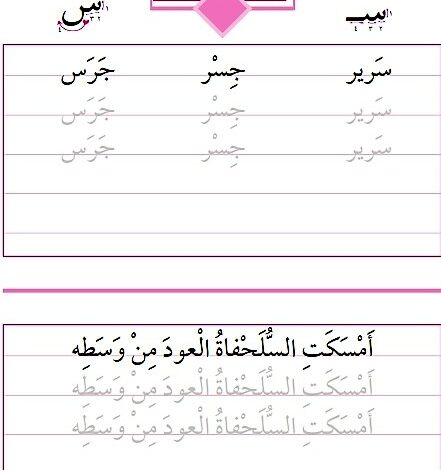 سـ س
سَرير جِسْر جَرَس
سَرير جِسْر جَرَس
سَرير جِسْر جَرَس
أَمْسَكَتِ السُّلَحْفاةُ الْعودَ مِنْ وَسَطِه
أَمْسَكَتِ السُّلَحْفاةُ الْعودَ مِنْ وَسَطِه
أَمْسَكَتِ السُّلَحْفاةُ الْعودَ مِنْ وَسَطِه